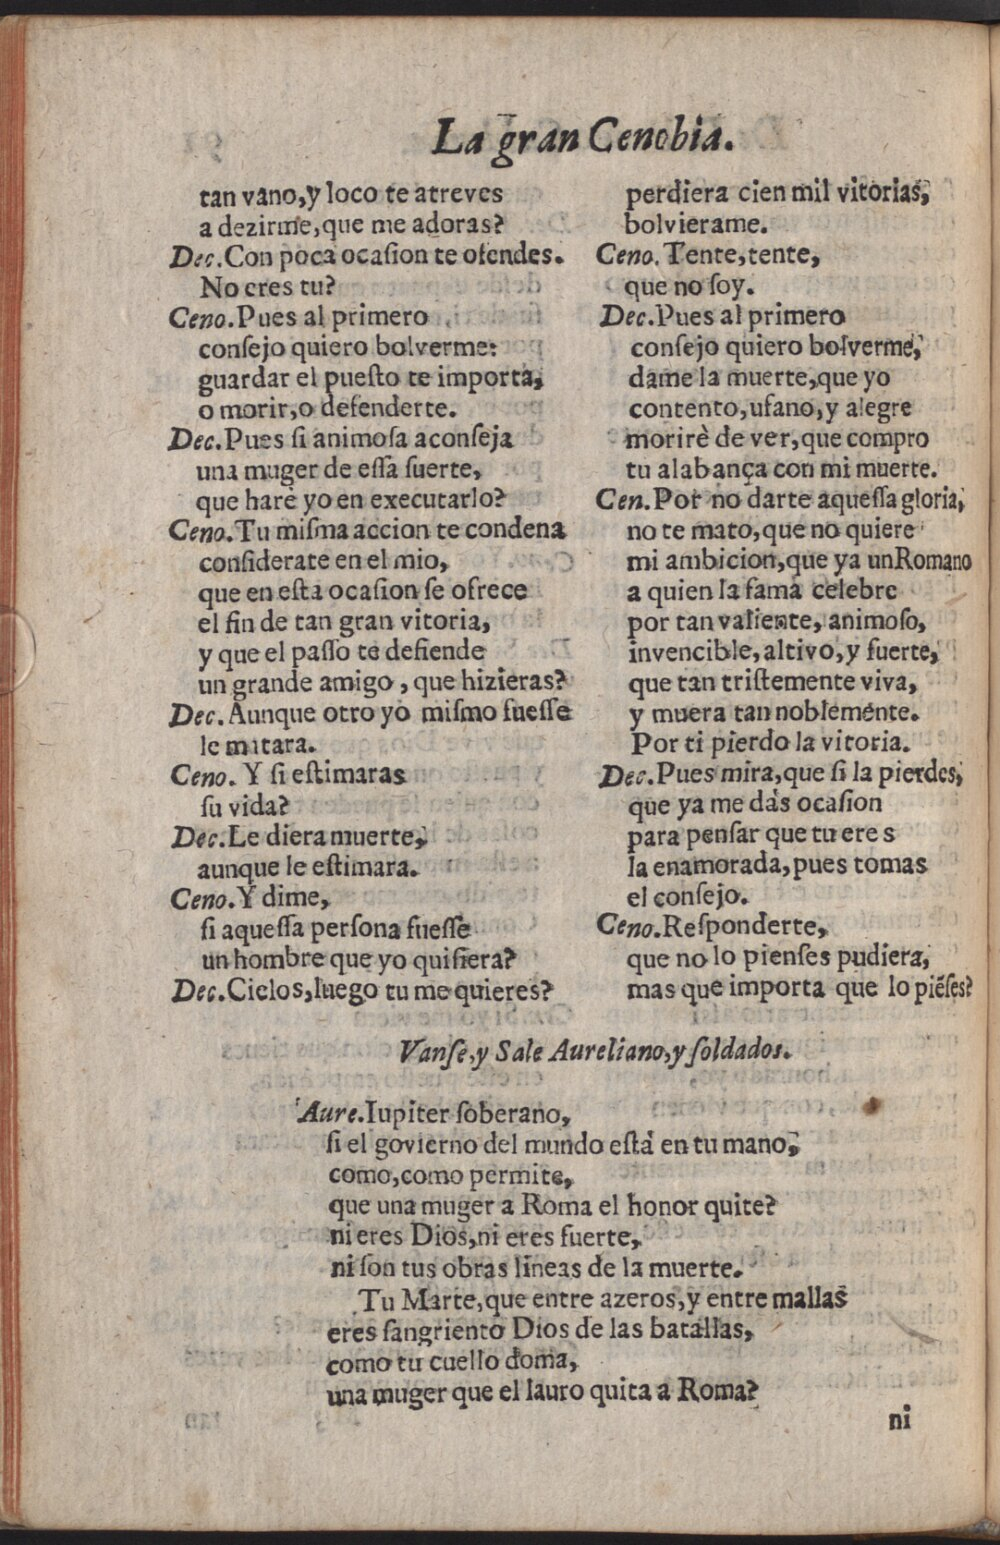 La gran Cenobia.
tan vano,y loco te atreves
a dezirme,que me adoras?
Dec.Con poca ocasion te ofendes.
No eres tu?
Ceno.Pues al primero
consejo quiero bolverme:
guardar el puesto te importa,
o morir,o defenderte.
Dec.Pues si animosa aconseja
una muger de essa suerte,
que harè yo en executarlo?
Ceno.Tu misma accion te condena
considerate en el mio,
que en esta ocasion se ofrece
el fin de tan gran vitoria,
y que el passo te defiende
un grande amigo, que hizieras?
Dec.Aunque otro yo mismo fuesse
le matara.
Ceno. Y si estimaras
su vida?
Dec.Le diera muerte,
aunque le estimara.
Ceno.Y dime,
si aquessa persona fuesse
un hombre que yo quisiera?
Dec.Cielos,luego tu me quieres?
perdiera cien mil vitorias,
bolvierame.
Ceno. Tente,tente,
que no soy.
Dec.Pues al primero
consejo quiero bolverme,
dame la muerte,que yo
contento,ufano,y alegre
morirè de ver,que compro
tu alabança con mi muerte.
Cen.Por no darte aquessa gloria,
no te mato,que no quiere
mi ambicion,que ya un Romano
a quien la fama celebre
por tan valiente, animoso,
invencible,altivo,y fuerte,
que tan tristemente viva,
y muera tan noblemente.
Por ti pierdo la vitoria.
Dec.Pues mira,que si la pierdes,
que ya me dàs ocasion
para pensar que tu eres
la enamorada,pues tomas
el consejo.
Ceno.Responderte,
que no lo pienses pudiera,
mas que importa que lo piẽses?
Vanse,y Sale Aureliano,y soldados.
Aure.Iupiter soberano,
si el govierno del mundo està en tu mano,
como,como permite,
que una muger a Roma el honor quite?
ni eres Dios,ni eres fuerte,
ni son tus obras lineas de la muerte.
Tu Marte,que entre azeros,y entre mallas
eres sangriento Dios de las batallas,
como tu cuello doma,
una muger que el lauro quita a Roma?
ni